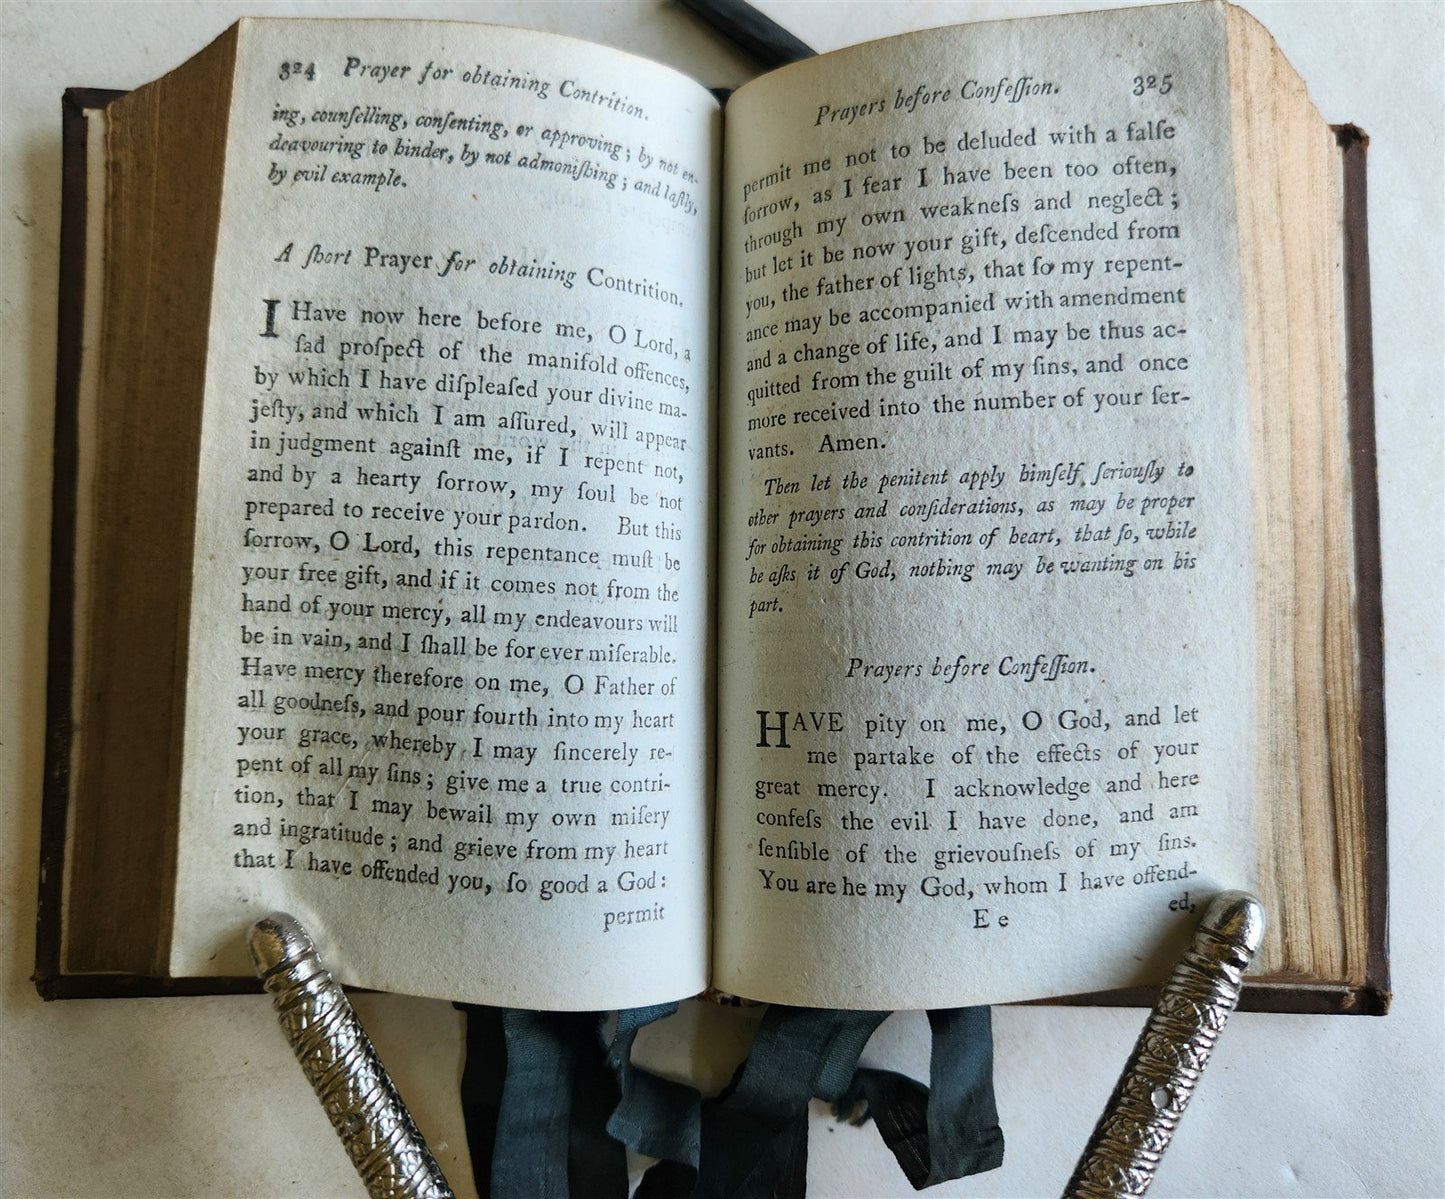 324 Prayer for obtaining Contrition.
ing, counſelling, conſenting, or approving; by not en-
deavouring to hinder, by not admoniſhing; and laſtly,
by evil example.
A ſhort Prayer for obtaining Contrition.
I Have now here before me, O Lord, a
ſad proſpect of the manifold offences,
by which I have diſpleaſed your divine ma-
jeſty, and which I am aſſured, will appear
in judgment againſt me, if I repent not,
and by a hearty ſorrow, my ſoul be not
prepared to receive your pardon. But this
ſorrow, O Lord, this repentance muſt be
your free gift, and if it comes not from the
hand of your mercy, all my endeavours will
be in vain, and I ſhall be for ever miſerable.
Have mercy therefore on me, O Father of
all goodneſs, and pour fourth into my heart
your grace, whereby I may ſincerely re-
pent of all my ſins; give me a true contri-
tion, that I may bewail my own miſery
and ingratitude; and grieve from my heart
that I have offended you, ſo good a God:
permit
Prayers before Confeſſion. 325
permit me not to be deluded with a falſe
ſorrow, as I fear I have been too often,
through my own weakneſs and neglect;
but let it be now your gift, deſcended from
you, the father of lights, that ſo my repent-
ance may be accompanied with amendment
and a change of life, and I may be thus ac-
quitted from the guilt of my ſins, and once
more received into the number of your ſer-
vants. Amen.
Then let the penitent apply himſelf ſeriouſly to
other prayers and conſiderations, as may be proper
for obtaining this contrition of heart, that ſo, while
he aſks it of God, nothing may be wanting on his
part.
Prayers before Confeſſion.
HAVE pity on me, O God, and let
me partake of the effects of your
great mercy. I acknowledge and here
confeſs the evil I have done, and am
ſenſible of the grievouſneſs of my ſins.
You are he my God, whom I have offend-
E e
ed,